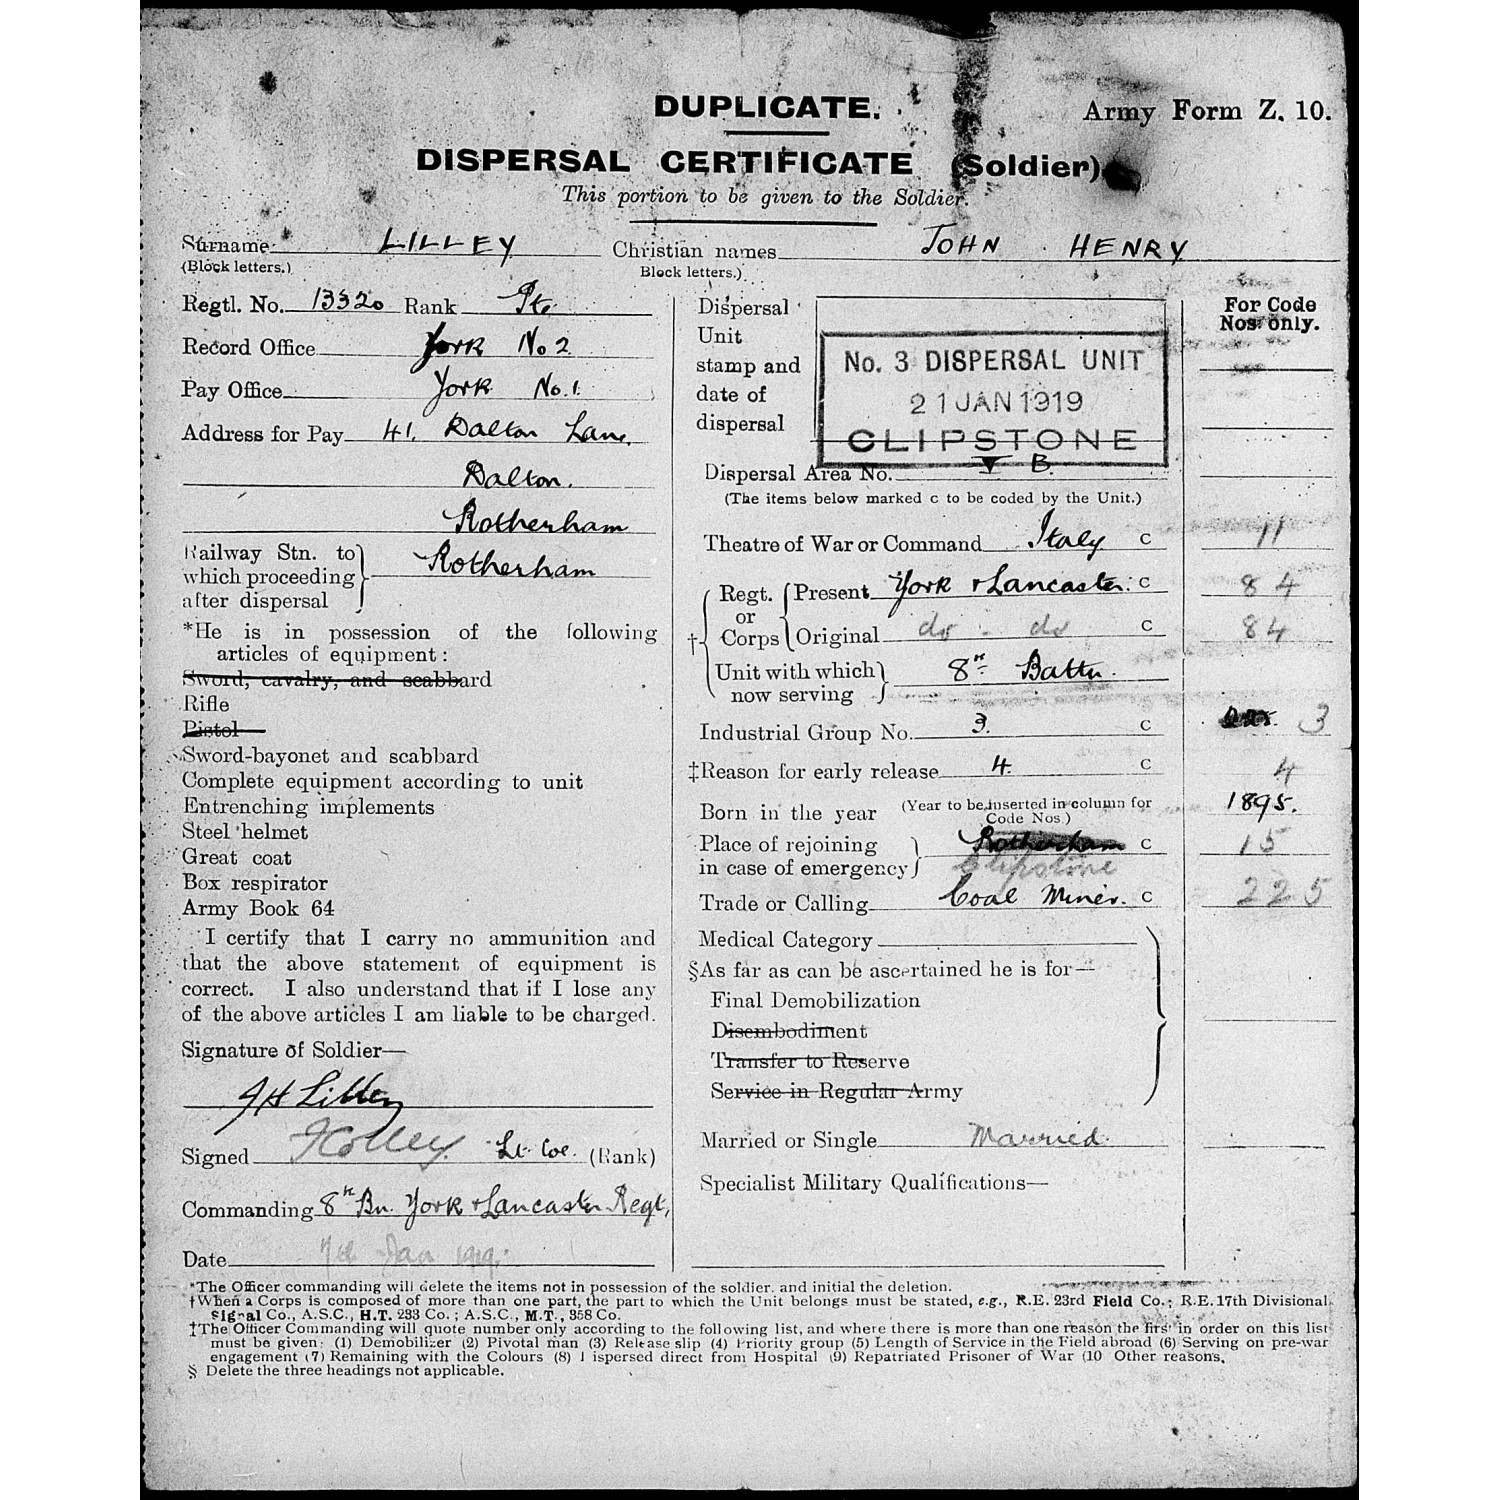 DUPLICATE.
Army Form Z. 10.
DISPERSAL CERTIFICATE (Soldier)
This portion to be given to the Soldier.
Surname LILLEY Christian names JOHN HENRY
(Block letters.) Block letters.)
Regtl. No. 13320 Rank Pte.
Record Office York No 2
Pay Office York No. 1.
Address for Pay 41. Dalton Lane.
Dalton.
Rotherham
Railway Stn. to which proceeding after dispersal } Rotherham
*He is in possession of the following
articles of equipment:
Sword, cavalry, and scabbard
Rifle
Pistol
Sword-bayonet and scabbard
Complete equipment according to unit
Entrenching implements
Steel helmet
Great coat
Box respirator
Army Book 64
I certify that I carry no ammunition and
that the above statement of equipment is
correct. I also understand that if I lose any
of the above articles I am liable to be charged.
Signature of Soldier—
JH Lilley
Signed Lt. Col. (Rank)
Commanding 8th Bn. York & Lancaster Regt.
Date 7th Jan 1919.
Dispersal
Unit
stamp and
date of
dispersal
No. 3 DISPERSAL UNIT
21 JAN 1919
CLIPSTONE
Dispersal Area No. V B.
(The items below marked c to be coded by the Unit.)
For Code
Nos. only.
Theatre of War or Command Italy c 11
† Regt. or Corps { Present York & Lancaster. c 84
Original do - do c 84
Unit with which now serving } 8th Battn.
Industrial Group No. 3. c 3
‡Reason for early release 4. c 4
Born in the year (Year to be inserted in column for Code Nos.) 1895.
Place of rejoining in case of emergency } Rotherham c 15
Clipstone
Trade or Calling Coal Miner. c 225
Medical Category
§As far as can be ascertained he is for—
Final Demobilization
Disembodiment
Transfer to Reserve
Service in Regular Army
Married or Single Married.
Specialist Military Qualifications—
*The Officer commanding will delete the items not in possession of the soldier. and initial the deletion.
†When a Corps is composed of more than one part, the part to which the Unit belongs must be stated, e.g., R.E. 23rd Field Co.; R.E. 17th Divisional
Signal Co., A.S.C., H.T. 233 Co.; A.S.C., M.T., 358 Co.
‡The Officer Commanding will quote number only according to the following list, and where there is more than one reason the first in order on this list
must be given: (1) Demobilizer (2) Pivotal man (3) Release slip (4) Priority group (5) Length of Service in the Field abroad (6) Serving on pre-war
engagement (7) Remaining with the Colours (8) Dispersed direct from Hospital (9) Repatriated Prisoner of War (10 Other reasons.
§ Delete the three headings not applicable.